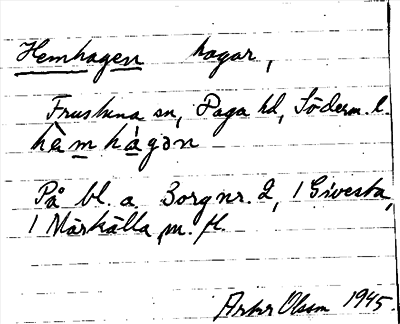 Hemhagen hagar,
Frustuna sn, Daga hd, Söderm. l.
hèmhágǝn
På bl. a. Sorg nr. 2, 1 Givesta,
1 Närkälla m. fl.
Olson 1945.